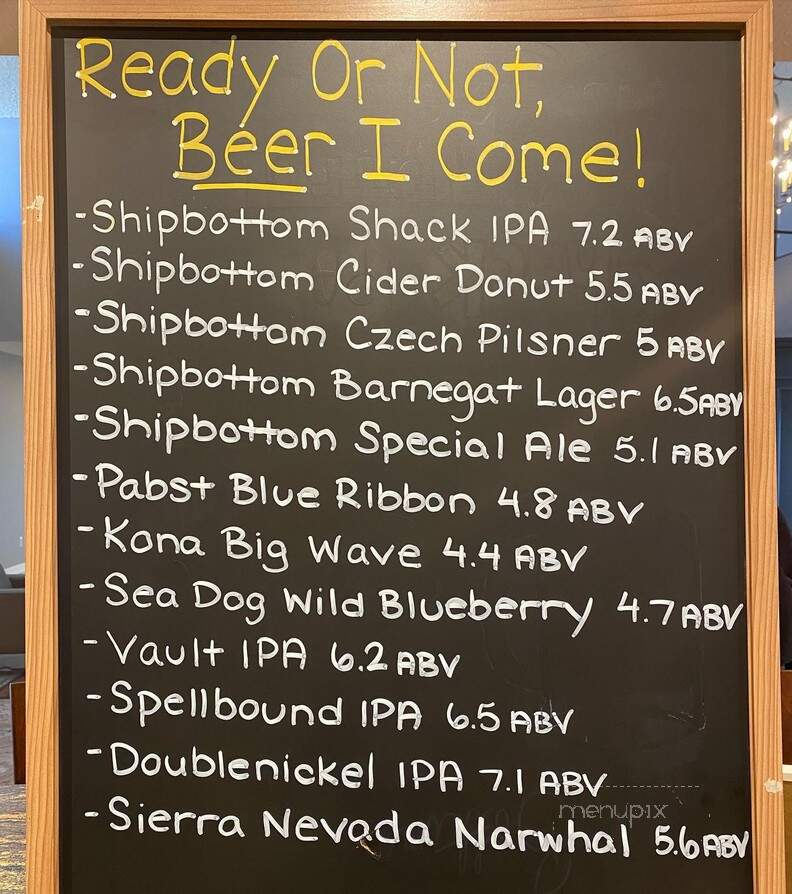 Ready Or Not,
Beer I Come!
-Shipbottom Shack IPA 7.2 ABV
-Shipbottom Cider Donut 5.5 ABV
-Shipbottom Czech Pilsner 5 ABV
-Shipbottom Barnegat Lager 6.5 ABV
-Shipbottom Special Ale 5.1 ABV
-Pabst Blue Ribbon 4.8 ABV
-Kona Big Wave 4.4 ABV
-Sea Dog Wild Blueberry 4.7 ABV
-Vault IPA 6.2 ABV
-Spellbound IPA 6.5 ABV
-Doublenickel IPA 7.1 ABV
menupix
-Sierra Nevada Narwhal 5.6 ABV